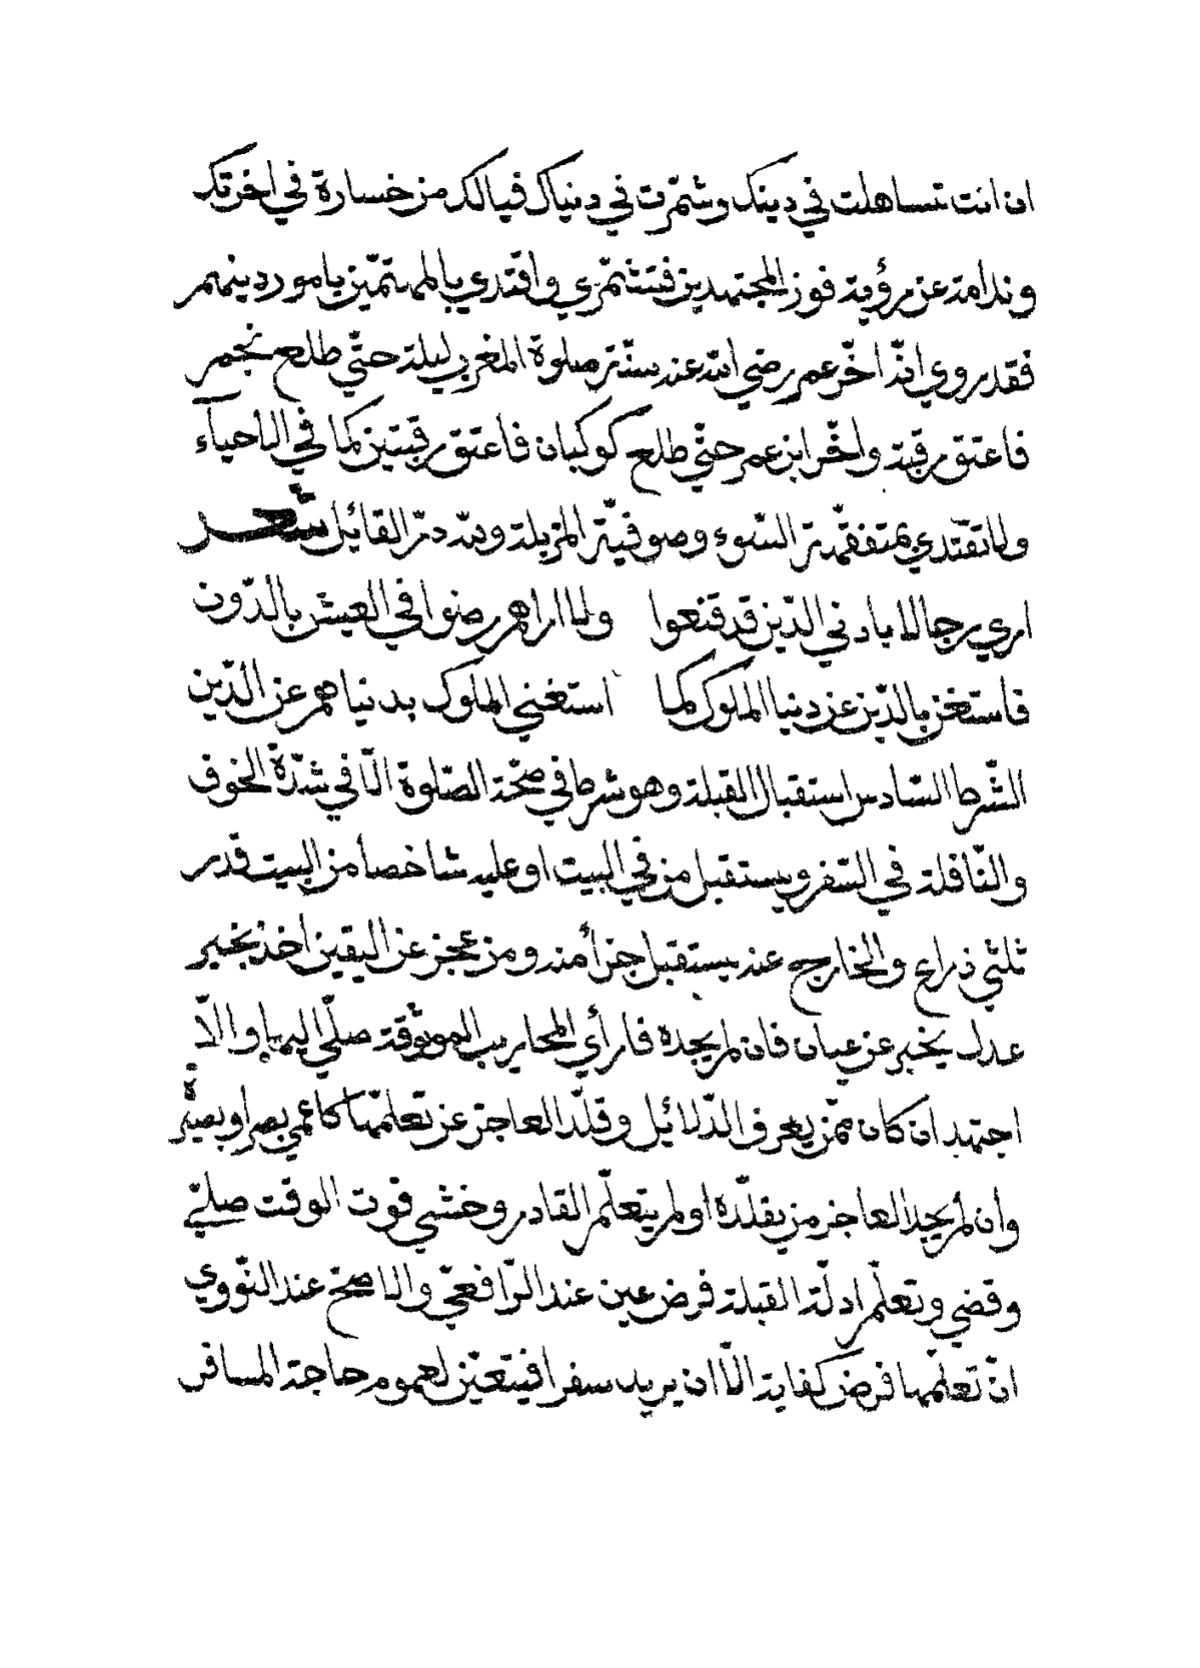 ان انت تساهلت في دينك وشمّرت في دنياك فيالك من خسارة في اخرتك
وندامة عن رؤية فوز المجتهدين فتشمّري واقتدي بالمهتمّين بامور دينهم
فقد روي انّه اخّر عمر رضي الله عنه سنّة صلوة المغرب ليلة حتّي طلع نجم
فاعتق رقبة واخّر ابن عمر حتّي طلع كوكبان فاعتق رقبتين كما في الاحياء
ولا تقتدي بمتفقّهة السّوء وصوفيّة المزبلة ولله درّ القائل شعر
اري رجالا بادني الدّين قد قنعوا ولا اراهم رضوا في العيش بالدّون
فاستغن بالدّين عن دنيا الملوك كما استغني الملوك بدنياهم عن الدّين
الشّرط السّادس استقبال القبلة وهو شرط في صحّة الصّلوة الّا في شدّة الخوف
والنّافلة في السّفر ويستقبل من في البيت او عليه شاخصا من البيت قدر
ثلثي ذراع والخارج عنه يستقبل جزأ منه ومن عجز عن اليقين اخذ بخبر
عدل يخبر عن عيان فان لم يجده فارأي المحاريب الموثوقة صلّي اليها والّا
اجتهد ان كان ممّن يعرف الدّلائل وقلّد العاجز عن تعلّمها كاعمي بصر او بصيرة
وان لم يجد العاجز من يقلّده او لم يتعلّم القادر وخشي فوت الوقت صلّي
وقضي وتعلّم ادلّة القبلة فرض عين عند الرّافعيّ والاصحّ عند النّووي
انّ تعلّمها فرض كفاية الّا ان يريد سفرا فيتعيّن لعموم حاجة المسافر